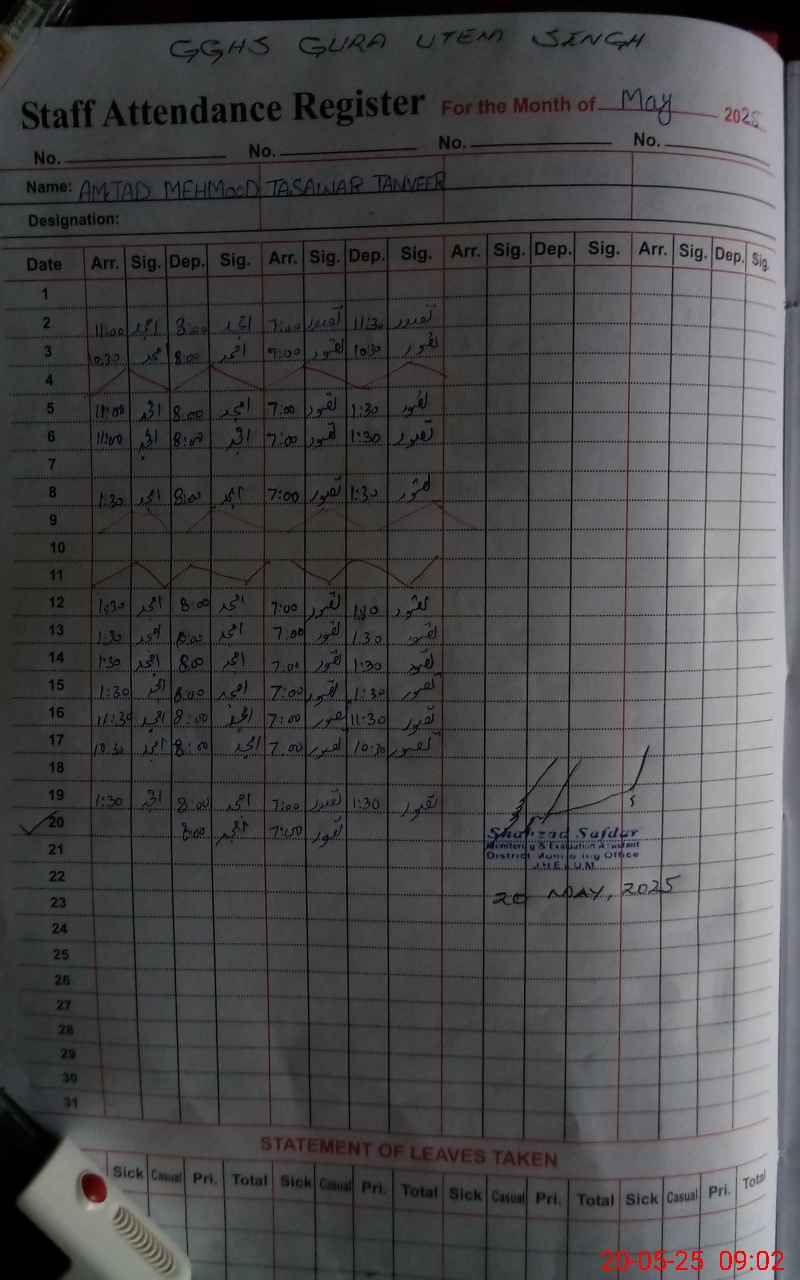 GGHS GURA UTEM SINGH
Staff Attendance Register For the Month of May 2025
No. No. No. No.
Name: AMJAD MEHMOOD TASAWAR TANVEER
Designation:
Date Arr. Sig. Dep. Sig. Arr. Sig. Dep. Sig. Arr. Sig. Dep. Sig. Arr. Sig. Dep. Sig.
1
2 11:00 امجد 8:00 امجد 7:00 تصور 11:30 تصور
3 10:30 امجد 8:00 امجد 7:00 تصور 10:30 تصور
4
5 11:00 امجد 8:00 امجد 7:00 تصور 1:30 تصور
6 11:00 امجد 8:00 امجد 7:00 تصور 1:30 تصور
7
8 1:30 امجد 8:00 امجد 7:00 تصور 1:30 تصور
9
10
11
12 1:30 امجد 8:00 امجد 7:00 تصور 1:30 تصور
13 1:30 امجد 8:00 امجد 7:00 تصور 1:30 تصور
14 1:30 امجد 8:00 امجد 7:00 تصور 1:30 تصور
15 1:30 امجد 8:00 امجد 7:00 تصور 1:30 تصور
16 11:30 امجد 8:00 امجد 7:00 تصور 11:30 تصور
17 10:30 امجد 8:00 امجد 7:00 تصور 10:30 تصور
18
19 1:30 امجد 8:00 امجد 7:00 تصور 1:30 تصور
20 8:00 امجد 7:00 تصور
Shahzad Safdar
Monitoring & Evaluation Assistant
21
District Monitoring Office
JHELUM
22
20 MAY, 2025
23
24
25
26
27
28
29
30
31
STATEMENT OF LEAVES TAKEN
Sick Casual Pri. Total Sick Casual Pri. Total Sick Casual Pri. Total Sick Casual Pri. Total
20-05-25 09:02